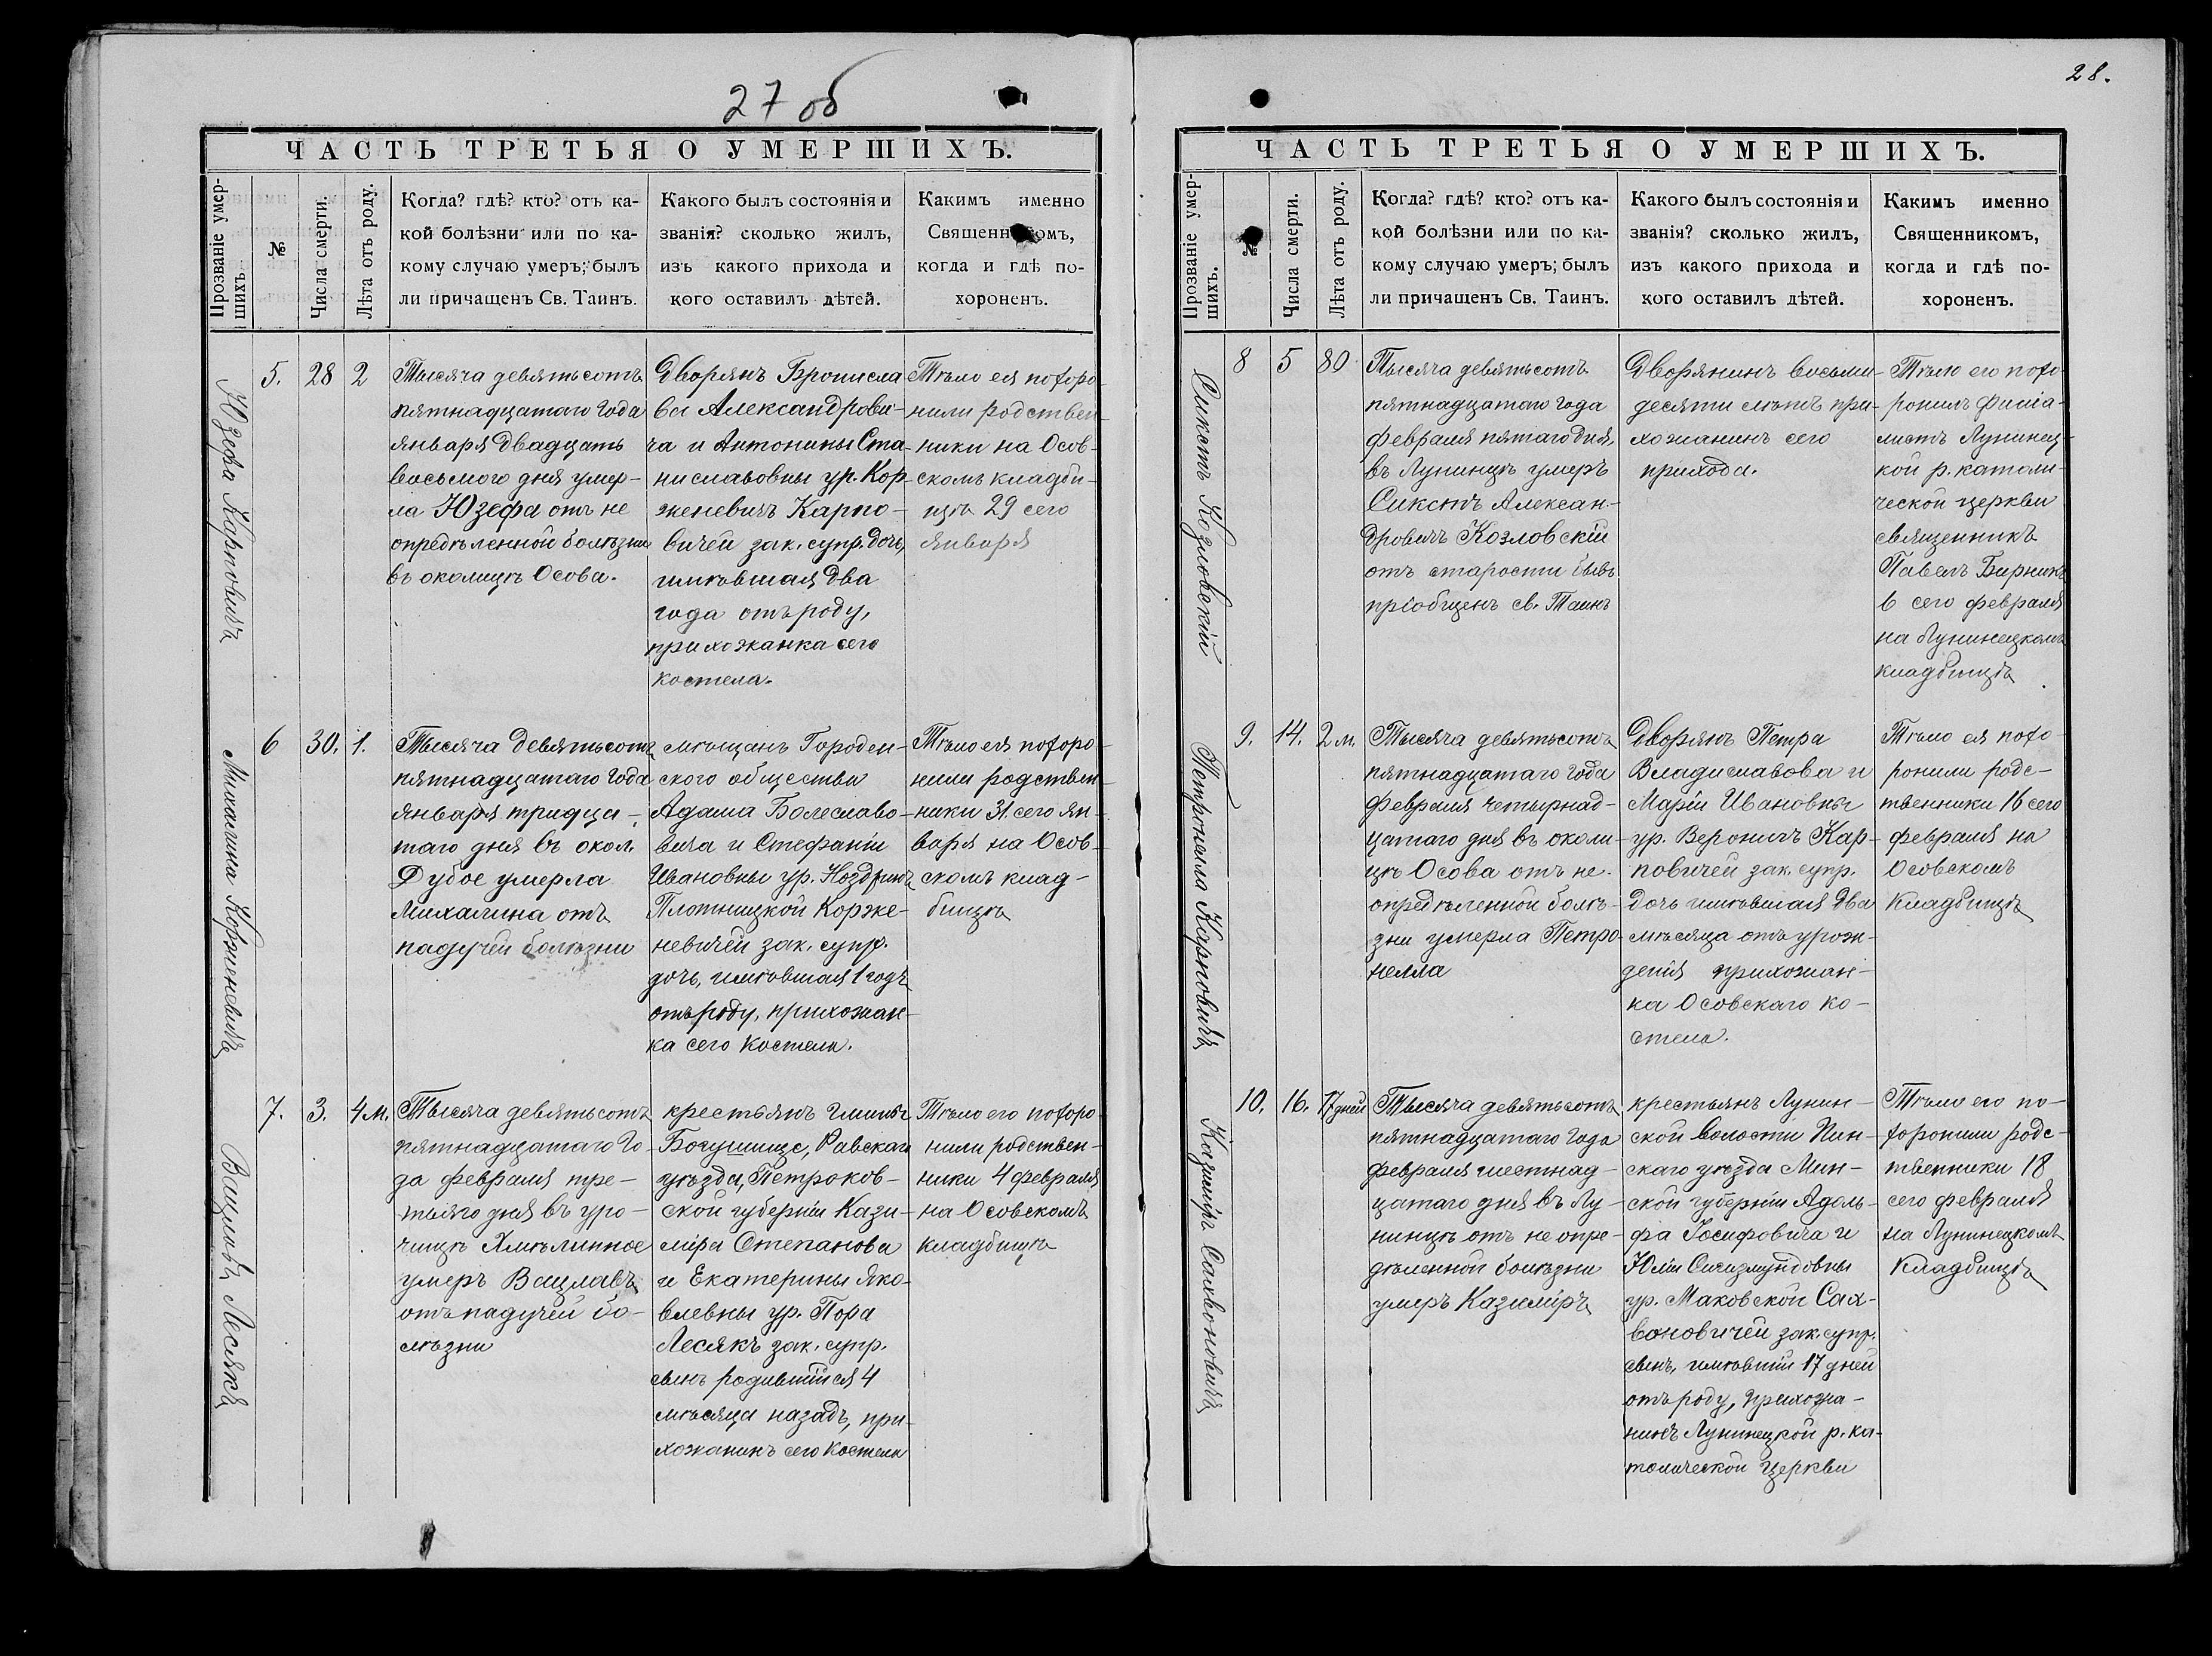 27 об
ЧАСТЬ ТРЕТЬЯ О УМЕРШИХЪ.
Прозваніе умер-
шихъ
№
Числа смерти.
Лѣта отъ роду.
Когда? гдѣ? кто? отъ ка-
кой болѣзни или по ка-
кому случаю умеръ; былъ
ли причащенъ Св. Таинъ.
Какого былъ состоянія и
званія? сколько жилъ,
изъ какого прихода и
кого оставилъ дѣтей.
Какимъ именно
Священникомъ,
когда и гдѣ по-
хороненъ.
Юзефа Карповичъ
5.
28
2
Тысяча девятьсотъ
пятнадцатаго года
января двадцать
восьмого дня умер-
ла Юзефа отъ не
опредѣленной болѣзни
въ околицѣ Осова.
Дворянъ Бронисла
ва Александрови-
ча и Антонины Ста-
ниславовны ур. Кор-
женевичъ Карпо-
вичей зак. супр. дочь,
имѣвшая два
года отъ роду,
прихожанка сего
костела.
Тѣло ея похоро-
нили родствен-
ники на Осов-
скомъ кладби-
щѣ 29 сего
января
Михалина Корженевичъ
6
30.
1.
Тысяча девятьсотъ
пятнадцатаго года
января тридца-
таго дня въ окол.
Дубое умерла
Михалина отъ
падучей болѣзни
мѣщанъ Городен-
ского общества
Адама Болеславо-
вича и Стефаніи
Ивановны ур. Ноздринъ
Плотницкой Корже-
невичей зак. супр.
дочь, имѣвшая 1 годъ
отъ роду, прихожан-
ка сего костела.
Тѣло ея похоро-
нили родствен-
ники 31. сего ян-
варя на Осов-
скомъ клад-
бищѣ
Вацлавъ Лесякъ
7.
3.
4 м.
Тысяча девятьсотъ
пятнадцатаго го-
да февраля тре-
тьяго дня въ уро-
чищѣ Хмѣлинное
умеръ Вацлавъ
отъ падучей бо-
лѣзни
крестьянъ гмины
Богушице, Равскаго
уѣзда, Петроков-
ской губерніи Кази-
міра Степанова
и Екатерины Яко-
влевны ур. Пора
Лесякъ зак. супр.
сынъ родившійся 4
мѣсяца назадъ, при-
хожанинъ сего костела
Тѣло его похоро-
нили родствен-
ники 4 февраля
на Осовскомъ
кладбищѣ
28.
ЧАСТЬ ТРЕТЬЯ О УМЕРШИХЪ.
Прозваніе умер-
шихъ.
№
Числа смерти.
Лѣта отъ роду.
Когда? гдѣ? кто? отъ ка-
кой болѣзни или по ка-
кому случаю умеръ; былъ
ли причащенъ Св. Таинъ.
Какого былъ состоянія и
званія? сколько жилъ,
изъ какого прихода и
кого оставилъ дѣтей.
Какимъ именно
Священникомъ,
когда и гдѣ по-
хороненъ.
Сикстъ Козловскій
8
5
80
Тысяча девятьсотъ
пятнадцатаго года
февраля пятаго дня,
въ Лунинцѣ умеръ
Сикстъ Алексан-
дровичъ Козловскій
отъ старости бывъ
пріобщенъ св. Таинъ
Дворянинъ восьми-
десяти лѣтъ при-
хожанинъ сего
прихода.
Тѣло его похо-
ронилъ филіа-
листъ Лунинец-
кой р. католи-
ческой церкви
священникъ
Павелъ Бирникъ
6 сего февраля
на Лунинецкомъ
кладбищѣ.
Петронелла Карповичъ
9.
14.
2 м.
Тысяча девятьсотъ
пятнадцатаго года
февраля четырнад-
цатаго дня въ околи-
цѣ Осова отъ не-
опредѣленной болѣ-
зни умерла Петро-
нелла
Дворянъ Петра
Владиславова и
Маріи Ивановны
ур. Вероничъ Кар-
повичей зак. супр.
дочь имѣвшая два
мѣсяца отъ урож-
денія прихожан-
ка Осовскаго ко-
стела.
Тѣло ея похо-
ронили родс-
твенники 16 сего
февраля на
Осовскомъ
кладбищѣ
Казиміръ Сахвоновичъ
10.
16.
17 дней
Тысяча девятьсотъ
пятнадцатаго года
февраля шестнад-
цатаго дня въ Лу-
нинцѣ отъ не опре-
дѣленной болѣзни
умеръ Казиміръ
крестьянъ Лунин-
ской волости Пин-
скаго уѣзда Мин-
ской губерніи Адоль-
фа Іосифовича и
Юліи Сигизмундовны
ур. Маковской Сах-
воновичей зак. супр.
сынъ, имѣвшій 17 дней
отъ роду, прихожа-
нинъ Лунинецкой р. ка-
толической церкви
Тѣло его по-
хоронили родс-
твенники 18
сего февраля
на Лунинецкомъ
кладбищѣ